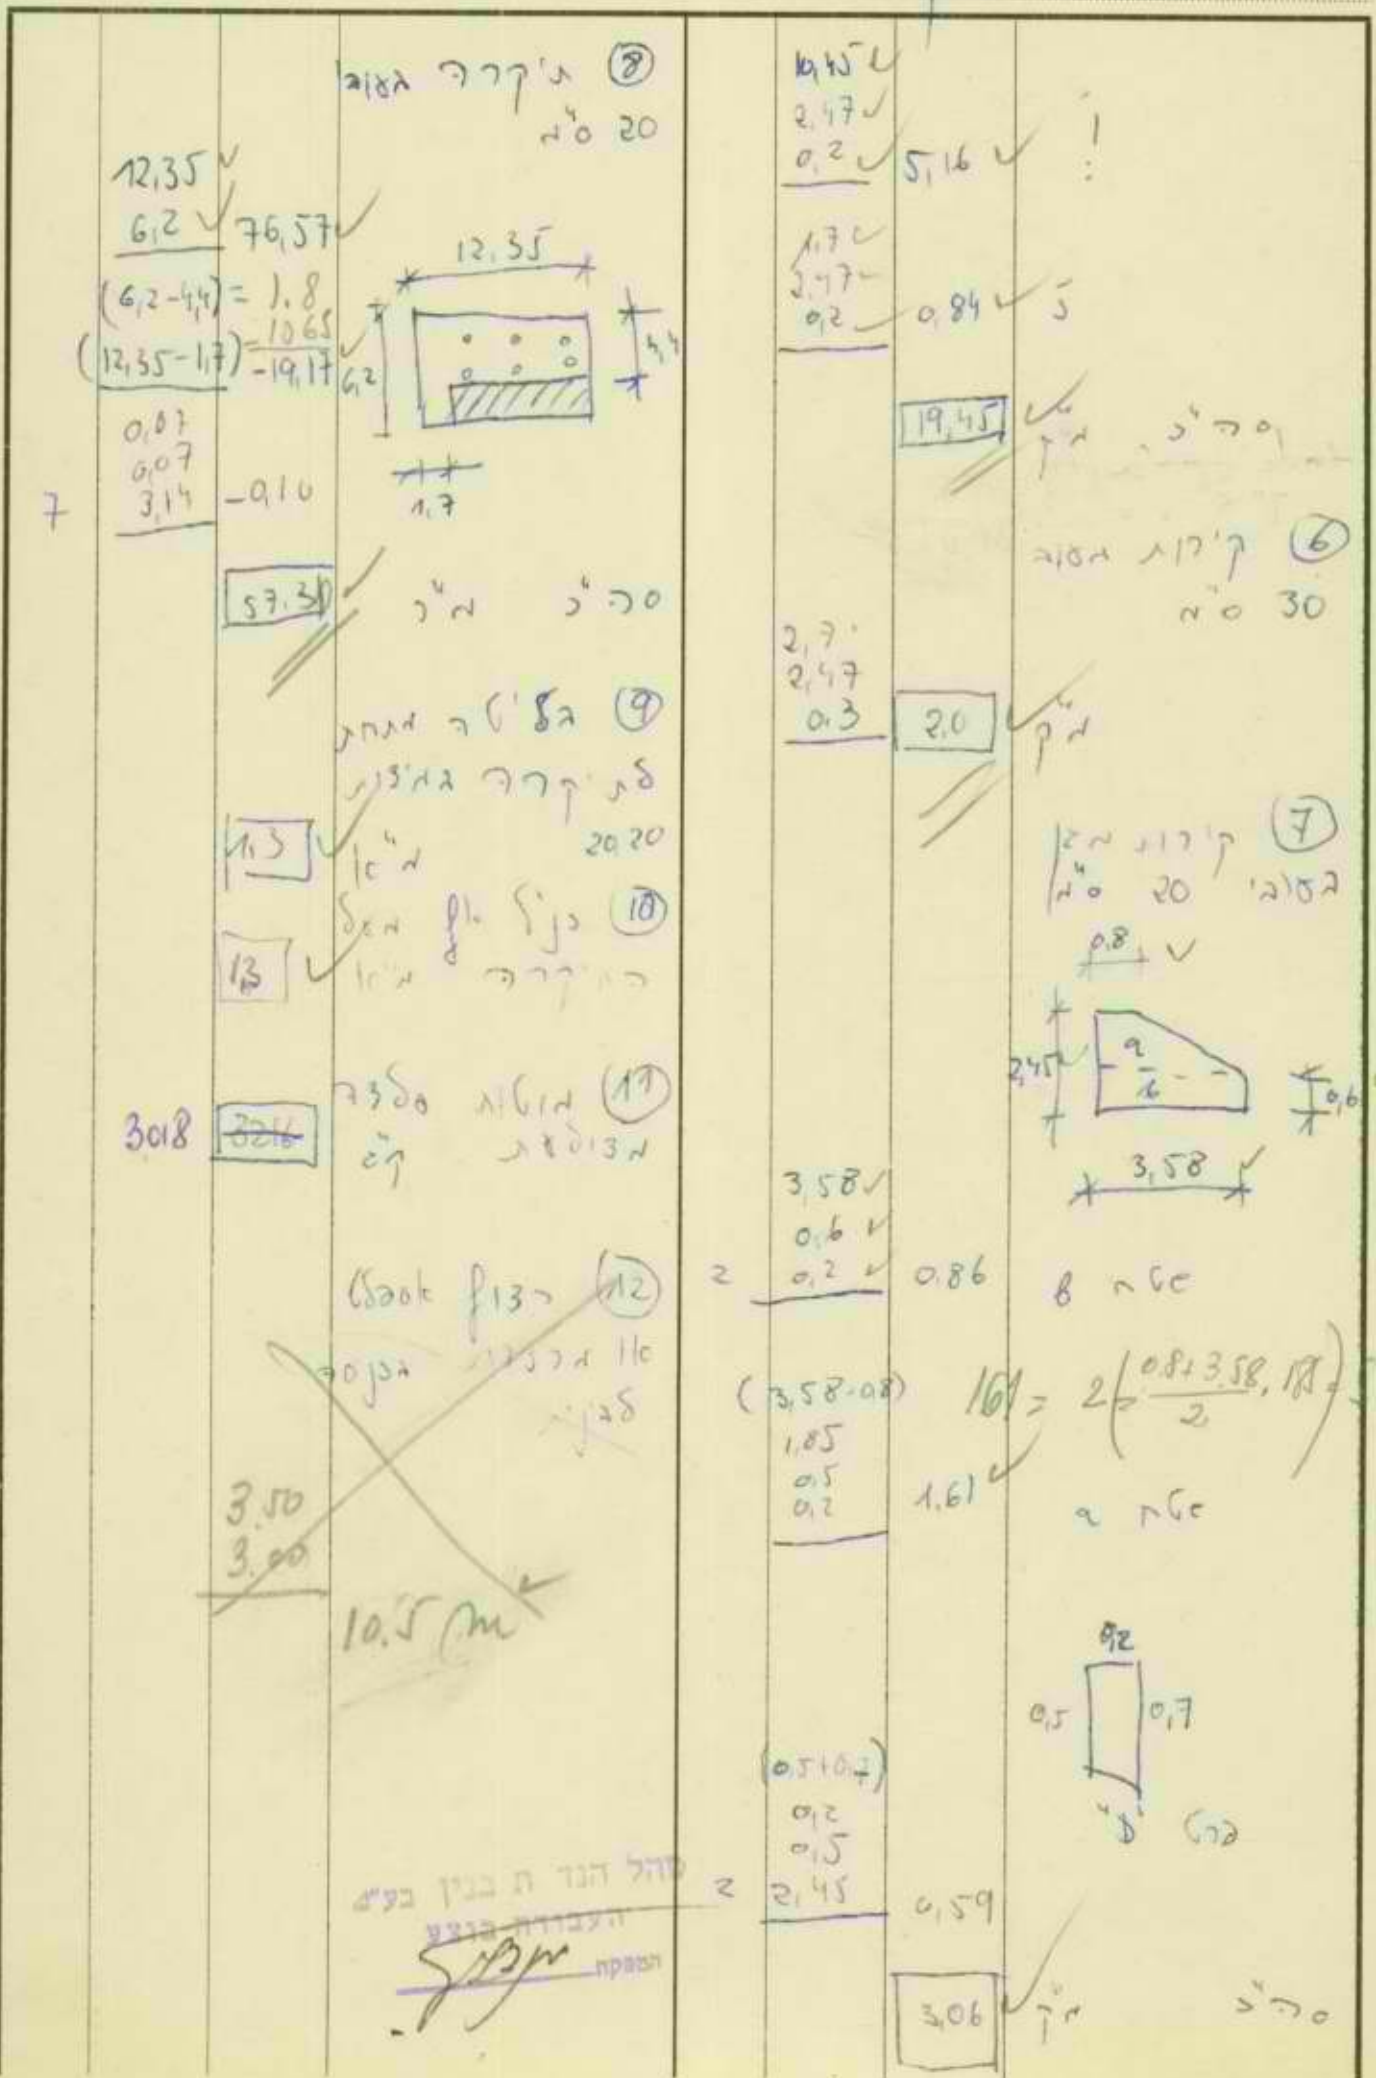 10,45
2,47
0,2 5,16
1,7
2,47
0,2 0,84
19,45 סה"כ מ"ק
6 קירות בעובי
30 ס"מ
2,7
2,47
0,3 2,0 מ"ק
7 קירות מגן
בעובי 20 ס"מ
0,8
2,45 a
b 0,6
3,58
3,58
0,6
2 0,2 0,86 שטח b
(3,58-0,8) 161 = 2(0.8+3.58/2
1,85
0,5
0,2 1,61 שטח a
0,2
0,5 0,7
פרט "D"
(0,5+0,7)
0,2
0,5
2 2,45 0,59
3,06 סה"כ מ"ק
8 תיקרה בעובי
20 ס"מ
12,35
6,2 76,57
(6,2-4,4)= 1.8
(12,35-1,7)=1065
-19,17
12,35
6,2 4,4
1,7
0,07
0,07
7 3,14 -0,10
57.30 סה"כ מ"ר
9 בליטה מתחת
לתיקרה במידות
20,20
1,3 מ"א
10 כנ"ל אף מעל
התיקרה מ"א
1,3
11 מוטות פלדה
מצולעת ק"ג
3018 3216
12 רצוף אספלט
או מרצפות בכניסה
3.50
3.00
10.5 m
בנין בע"מ
המפקח